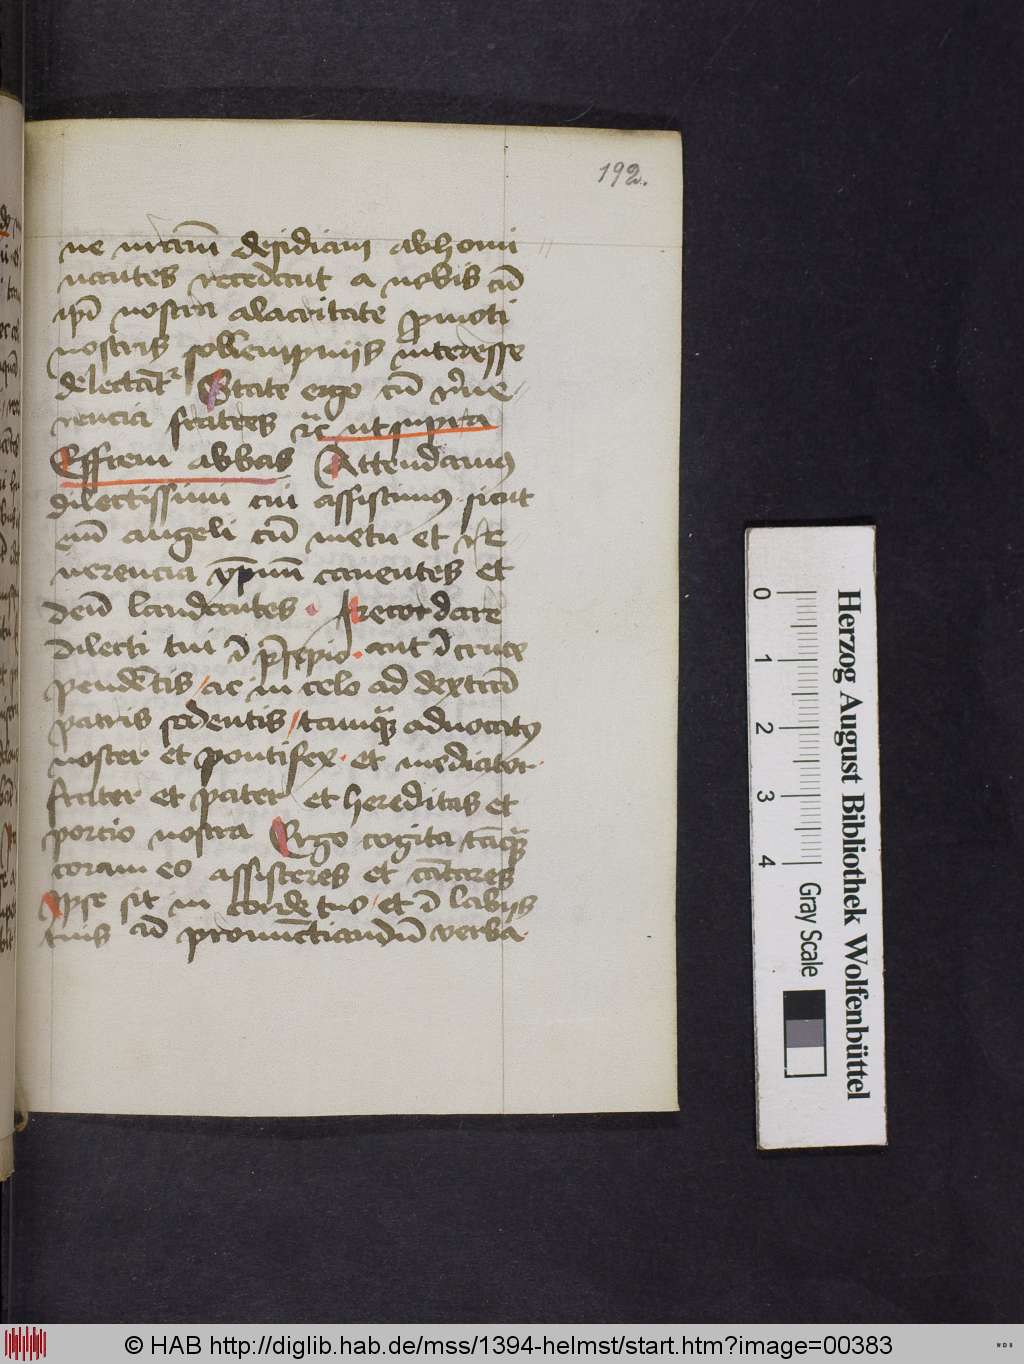 192.
ne vrām desidiam abhomi
nantes recedant a nobis cū
ipī nostra alacritate ꝓmoti
nostris sollempniis interesse
delectātᷣ State ergo cū
rencia fratres ut supra
Effrem abbas Attendamꝰ
dilectissimi cui assistimꝰ sicut
eni angeli cū metu et
uerencia ypnū canentes et
deū laudantes recordare
dilecti tui ī p̄sepio aut ī cruce
pendētis ac in celo ad dextrā
patris sedentis tamqᷓ aduocatꝰ
noster et pontifex et mediator
frater et pater et hereditas et
portio nostra Ergo cogita tāqᷓ
coram eo assisteres et cātares
Ipse sit in corde tuo et ī labijs
tuis ad pronūctiandū verba
0 1 2 3 4
Gray Scale
Herzog August Bibliothek Wolfenbüttel
© HAB http://diglib.hab.de/mss/1394-helmst/start.htm?image=00383